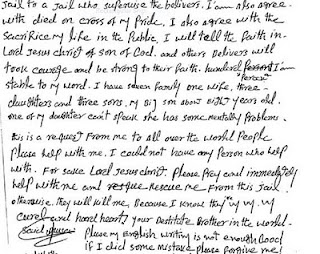 Jail to a jail who supervise the belivers. I am also agree
with died on cross of my Pride. I also agree with the
sacrifice my life in the Public. I will tell the Faith in
Lord Jesus christ of son of God. and others Belivers will
took courage and be strong to their Faith. hundred Person I am
Person
stable to my word. I have seven Family one wife, three
daughters and three sons. my big son about eight years old.
one of my daughter can't speak she has some mentally Problems.
this is a request From me to all over the world People
Please help with me. I could not have any Person who help
with. For sake Lord Jesus christ. Please Pray and immediately
help with me and rescue me From this Jail
otherwise. they will kill me, Because I know they
Cruel and hard heart. your Destitute Brother in the world.
Please my English writing is not enough Good
if I did some mistake please Forgive me!